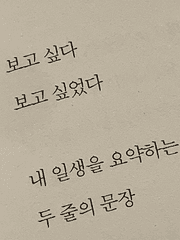 보고 싶다
보고 싶었다
내 일생을 요약하는
두 줄의 문장